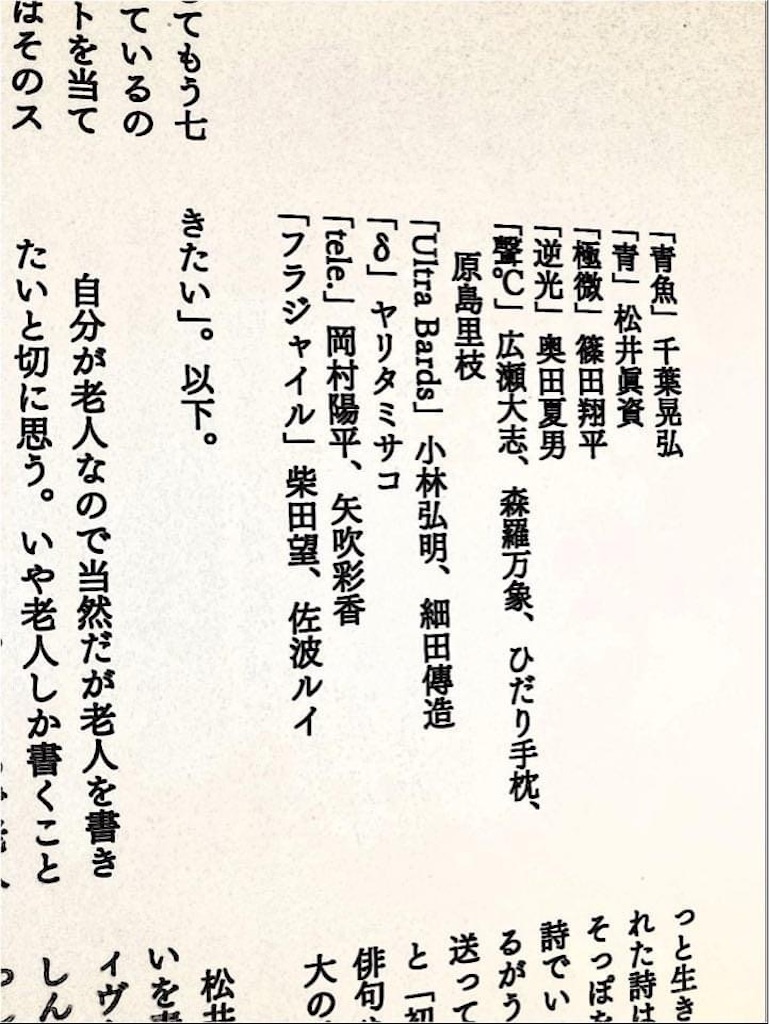 てもう七
ているの
トを当て
はそのス
「青魚」 千葉晃弘
「青」 松井眞資
「極微」 篠田翔平
「逆光」 奥田夏男
「聲℃」 広瀬大志、森羅万象、ひだり手枕、
原島里枝
「Ultra Bards」 小林弘明、細田傳造
「δ」 ヤリタミサコ
「tele.」 岡村陽平、矢吹彩香
「フラジャイル」 柴田望、佐波ルイ
きたい」。以下。
自分が老人なので当然だが老人を書き
たいと切に思う。いや老人しか書くこと
っと生き
れた詩は
そっぽを
詩でい
るがう
送って
と「初
俳句
大の
松井
いを
ィヴ
しん